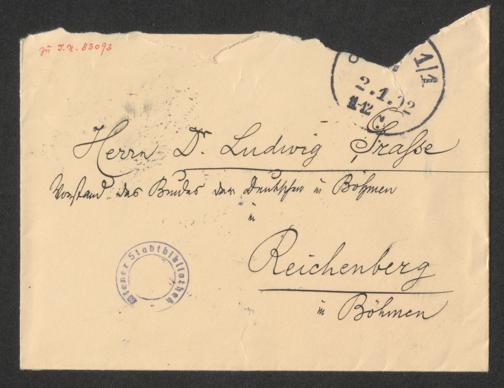 zu I.N. 83093
1/1
2.1.02
11-12
Herrn D. Ludwig Praſse
Vorstand des Bundes der Deutschen in Böhmen
in
Reichenberg
in Böhmen
Wiener Stadtbibliothek